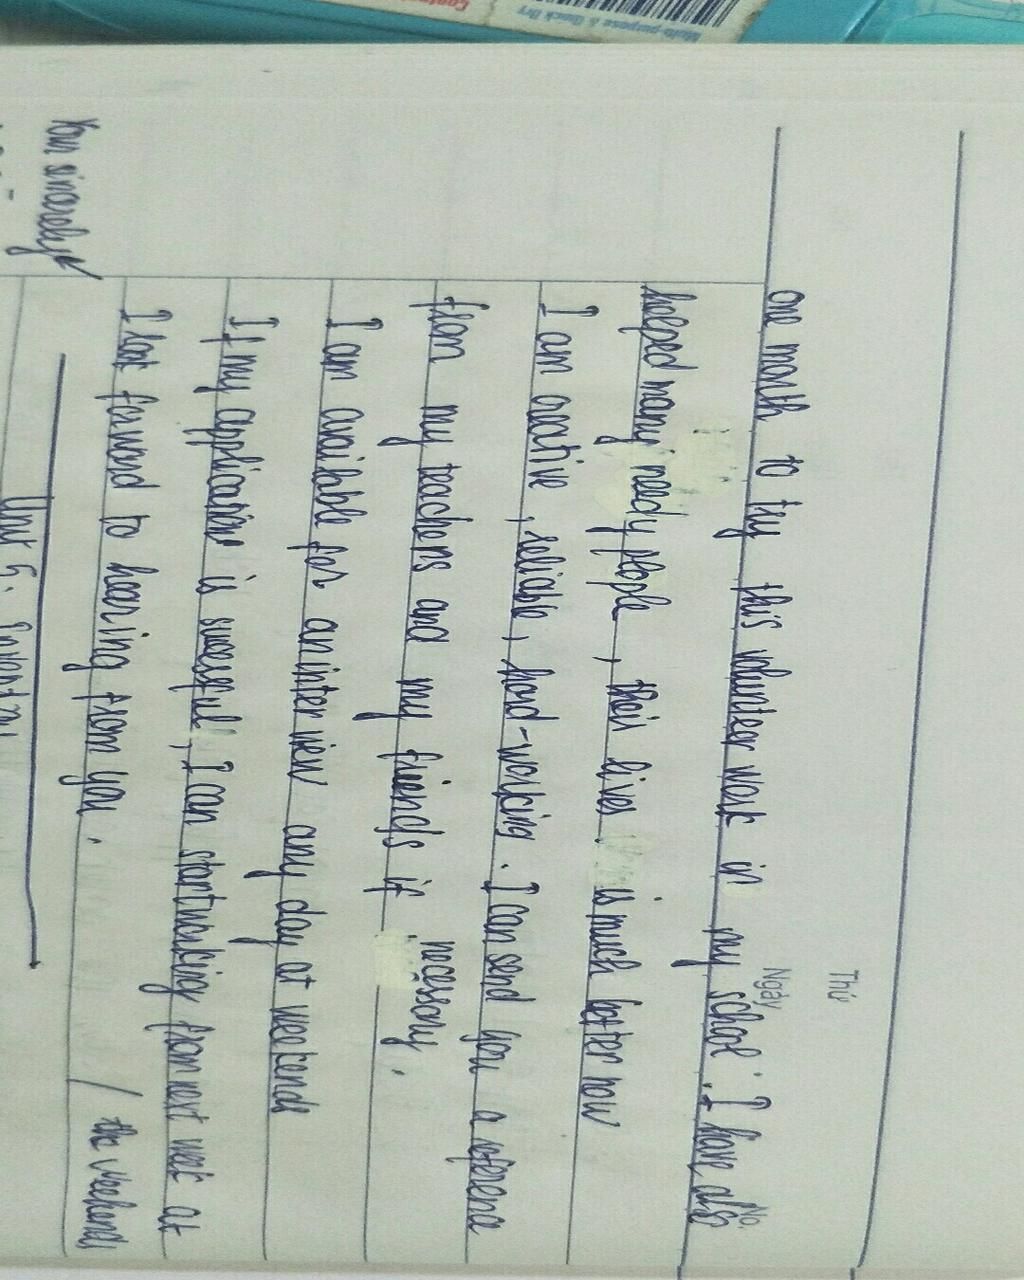 Multi-purpose & Quick Dry
Thứ
Ngày
No.
one month to try this volunteer work in my school. I have also
helped many needy people, their lives is much better now
I am creative, reliable, hard-working. I can send you a reference
from my teachers and my friends if necessary.
I am available for an interview any day at weekends
If my application is successful, I can start working from next week at
/ the weekends
I look forward to hearing from you.
Your sincerely
Unit 5: